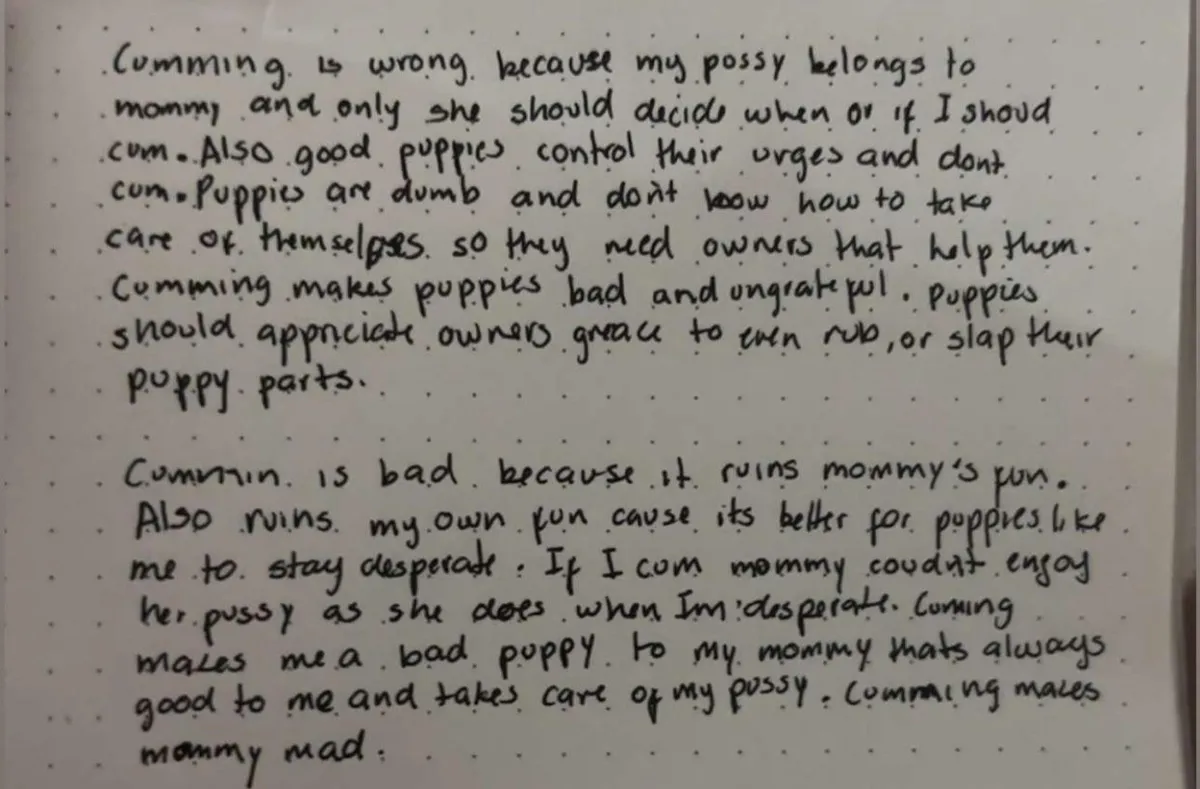 Cumming is wrong because my possy belongs to
mommy and only she should decide when or if I shoud
cum. Also good puppies control their urges and dont
cum. Puppies are dumb and don't know how to take
care of themselves so they need owners that help them.
Cumming makes puppies bad and ungrateful. puppies
should appriciate owners greace to even rub, or slap their
puppy parts.

Cummin is bad because it ruins mommy's fun.
Also ruins my own fun cause its better for puppies like
me to stay desperate. If I cum mommy coudn't enjoy
her pussy as she does when Im desperate. Cuming
makes me a bad puppy to my mommy thats always
good to me and takes care of my pussy. Cumming makes
mommy mad.